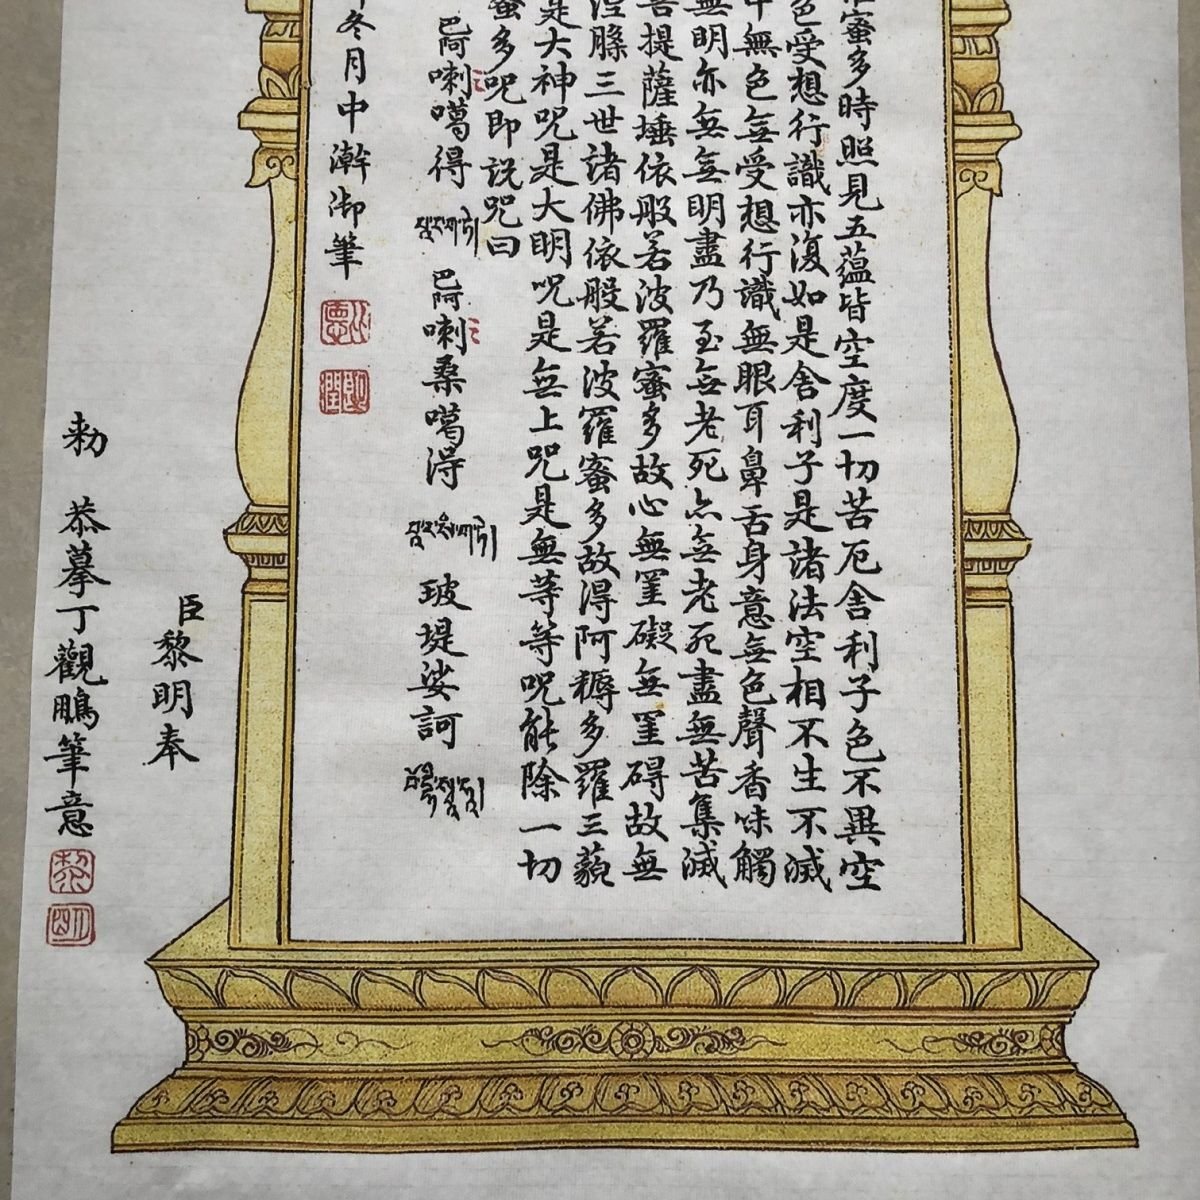 蜜多時照見五蘊皆空度一切苦厄舍利子色不異空
色受想行識亦復如是舍利子是諸法空相不生不滅
中無色無受想行識無眼耳鼻舌身意無色聲香味觸
無明亦無無明盡乃至無老死亦無老死盡無苦集滅
菩提薩埵依般若波羅蜜多故心無罣礙無罣碍故無
涅槃三世諸佛依般若波羅蜜多故得阿耨多羅三藐
是大神呪是大明呪是無上呪是無等等呪能除一切
蜜多呪即說呪曰
巴阿喇噶得 巴阿喇桑噶得 玻堤娑訶
冬月中澣御筆
臣黎明奉
勅 恭摹丁觀鵬筆意
黎
明